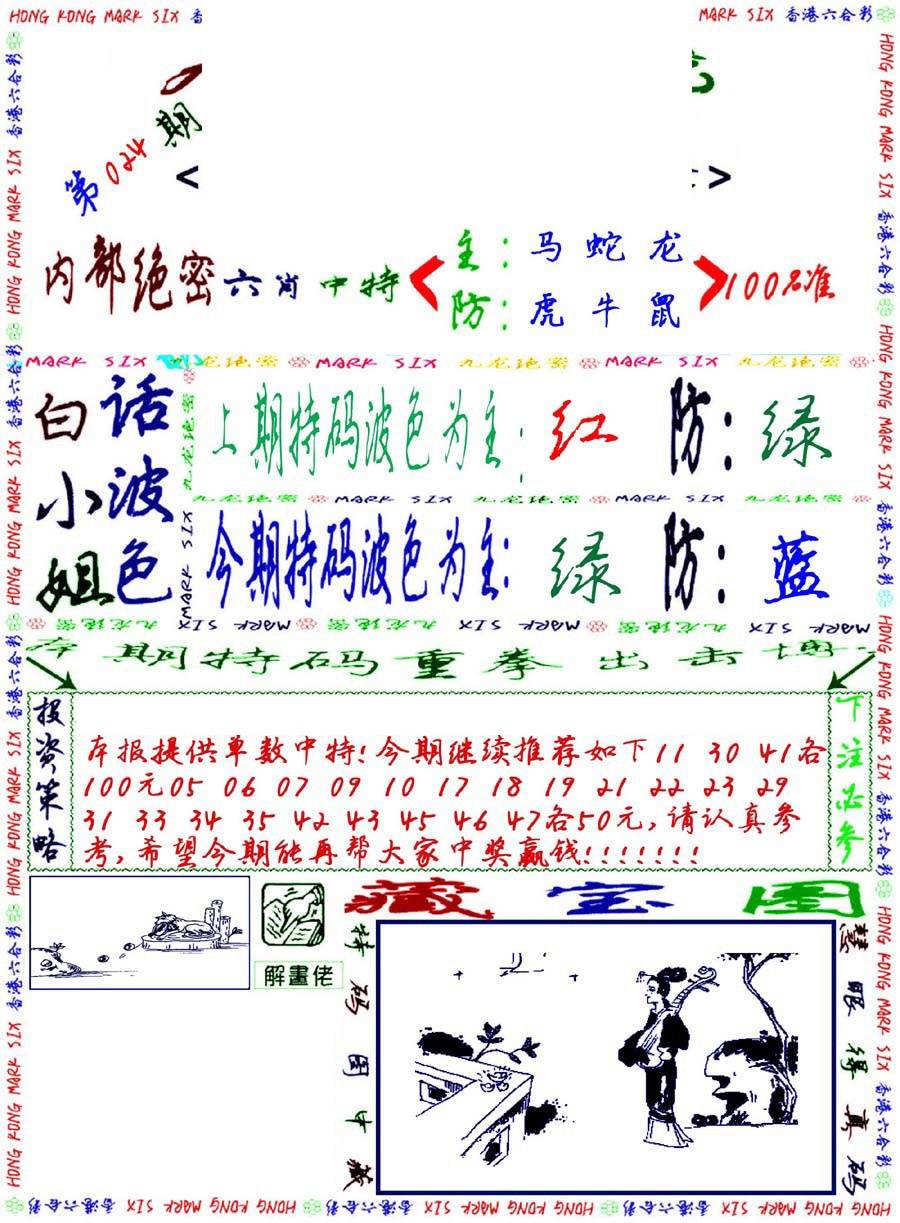 HONG KONG MARK SIX 香
MARK SIX 香港六合彩
第024期
< >
内部绝密六肖中特
主：马 蛇 龙
防：虎 牛 鼠
100%准
MARK SIX 九龙绝密 MARK SIX 九龙绝密 MARK SIX 九龙绝密
白小姐
话波色
上期特码波色为主：红 防：绿
九龙绝密 MARK SIX 九龙绝密 MARK SIX 九龙绝密
今期特码波色为主：绿 防：蓝
MARK SIX 九龙绝密 MARK SIX 九龙绝密 MARK SIX 九龙绝密
期特码重拳出击
投资策略
本报提供单数中特!今期继续推荐如下11 30 41各
100元05 06 07 09 10 17 18 19 21 22 23 29
31 33 34 35 42 43 45 46 47各50元,请认真参
考,希望今期能再帮大家中奖赢钱!!!!!!!
下注必参
解畫佬
藏宝图
特码图中藏
慧眼得真码
HONG KONG MARK SIX 香港六合彩